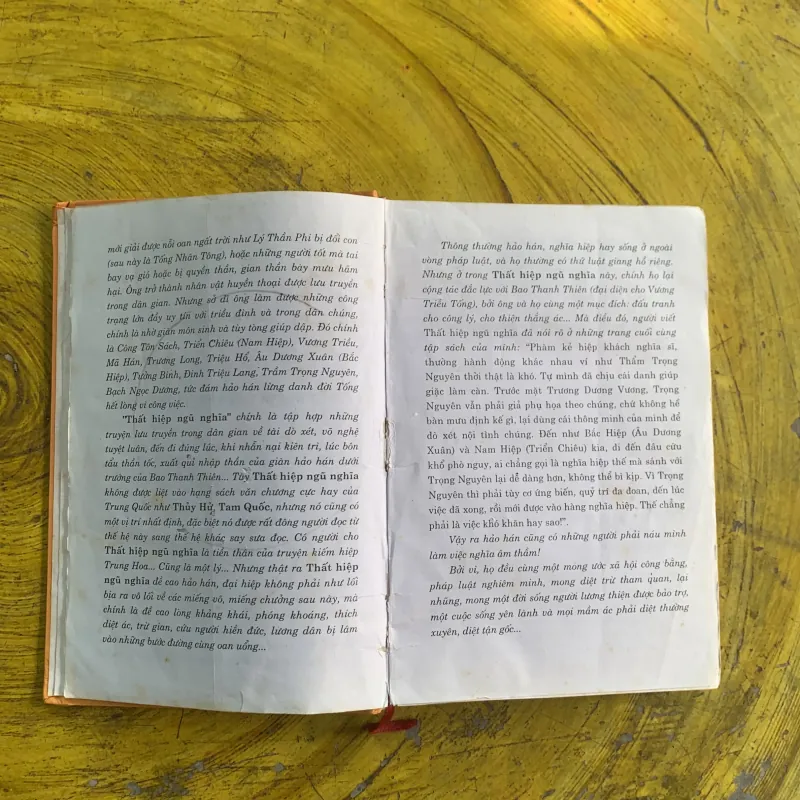 mới giải được nỗi oan ngất trời như Lý Thần Phi bị đổi con
(sau này là Tống Nhân Tông), hoặc những người tốt mà tai
bay vạ gió hoặc bị quyền thần, gian thần bày mưu hãm
hại. Ông trở thành nhân vật huyền thoại được lưu truyền
trong dân gian. Nhưng sở dĩ ông làm được những công
trạng lớn đầy uy tín với triều đình và trong dân chúng,
chính là nhờ giàn môn sinh và tùy tòng giúp dập. Đó chính
là Công Tôn Sách, Triển Chiêu (Nam Hiệp), Vương Triều,
Mã Hán, Trương Long, Triệu Hổ, Âu Dương Xuân (Bắc
Hiệp), Tưởng Bình, Đinh Triệu Lang, Trầm Trọng Nguyên,
Bạch Ngọc Dương, tức đám hảo hán lừng danh đời Tống
hết lòng vì công việc.
"Thất hiệp ngũ nghĩa" chính là tập hợp những
truyện lưu truyền trong dân gian về tài dò xét, võ nghệ
tuyệt luân, đến đi đúng lúc, khi nhẫn nại kiên trì, lúc bôn
tẩu thần tốc, xuất quỉ nhập thần của giàn hảo hán dưới
trướng của Bao Thanh Thiên... Tuy Thất hiệp ngũ nghĩa
không được liệt vào hạng sách văn chương cực hay của
Trung Quốc như Thủy Hử, Tam Quốc, nhưng nó cũng có
một vị trí nhất định, đặc biệt nó được rất đông người đọc từ
thế hệ này sang thế hệ khác say sưa đọc. Có người cho
Thất hiệp ngũ nghĩa là tiền thân của truyện kiếm hiệp
Trung Hoa... Cũng là một lý... Nhưng thật ra Thất hiệp
ngũ nghĩa đề cao hảo hán, đại hiệp không phải như lối
bịa ra vô lối về các miếng võ, miếng chưởng sau này, mà
chính là đề cao lòng khẳng khái, phóng khoáng, thích
diệt ác, trừ gian, cứu người hiền đức, lương dân bị lâm
vào những bước đường cùng oan uổng...
Thông thường hảo hán, nghĩa hiệp hay sống ở ngoài
vòng pháp luật, và họ thường có thữ luật giang hồ riêng.
Nhưng ở trong Thất hiệp ngũ nghĩa này, chính họ lại
cộng tác đắc lực với Bao Thanh Thiên (đại diện cho Vương
Triều Tống), bởi ông và họ cùng một mục đích: đấu tranh
cho công lý, cho thiện thắng ác... Mà điều đó, người viết
Thất hiệp ngũ nghĩa đã nói rõ ở những trang cuối cùng
tập sách của mình: "Phàm kẻ hiệp khách nghĩa sĩ,
thường hành động khác nhau ví như Thẩm Trọng
Nguyên thời thật là khó. Tự mình đã chịu cái danh giúp
giặc làm càn. Trước mặt Trương Dương Vương, Trọng
Nguyên vẫn phải giả phụ họa theo chúng, chứ không hề
bàn mưu định kế gì, lại dùng cái thông minh của mình để
dò xét nội tình chúng. Đến như Bác Hiệp (Âu Dương
Xuân) và Nam Hiệp (Triển Chiêu) kia, di đến đâu cứu
khổ phò nguy, ai chẳng gọi là nghĩa hiệp thế mà sánh với
Trọng Nguyên lại dễ dàng hơn, không thể bì kịp. Vì Trọng
Nguyên thì phải tùy cơ ứng biến, quỷ trí đa đoan, đến lúc
việc đã xong, rồi mới được vào hàng nghĩa hiệp. Thế chẳng
phải là việc khó khăn hay sao!".
Vậy ra hảo hán cũng có những người phải náu mình
làm việc nghĩa âm thầm!
Bởi vì, họ đều cùng một mong ước xã hội công bằng,
pháp luật nghiêm minh, mong diệt trừ tham quan, lại
nhũng, mong một đời sống người lương thiện được bảo trợ,
một cuộc sống yên lành và mọi mầm ác phải diệt thường
xuyên, diệt tận gốc...